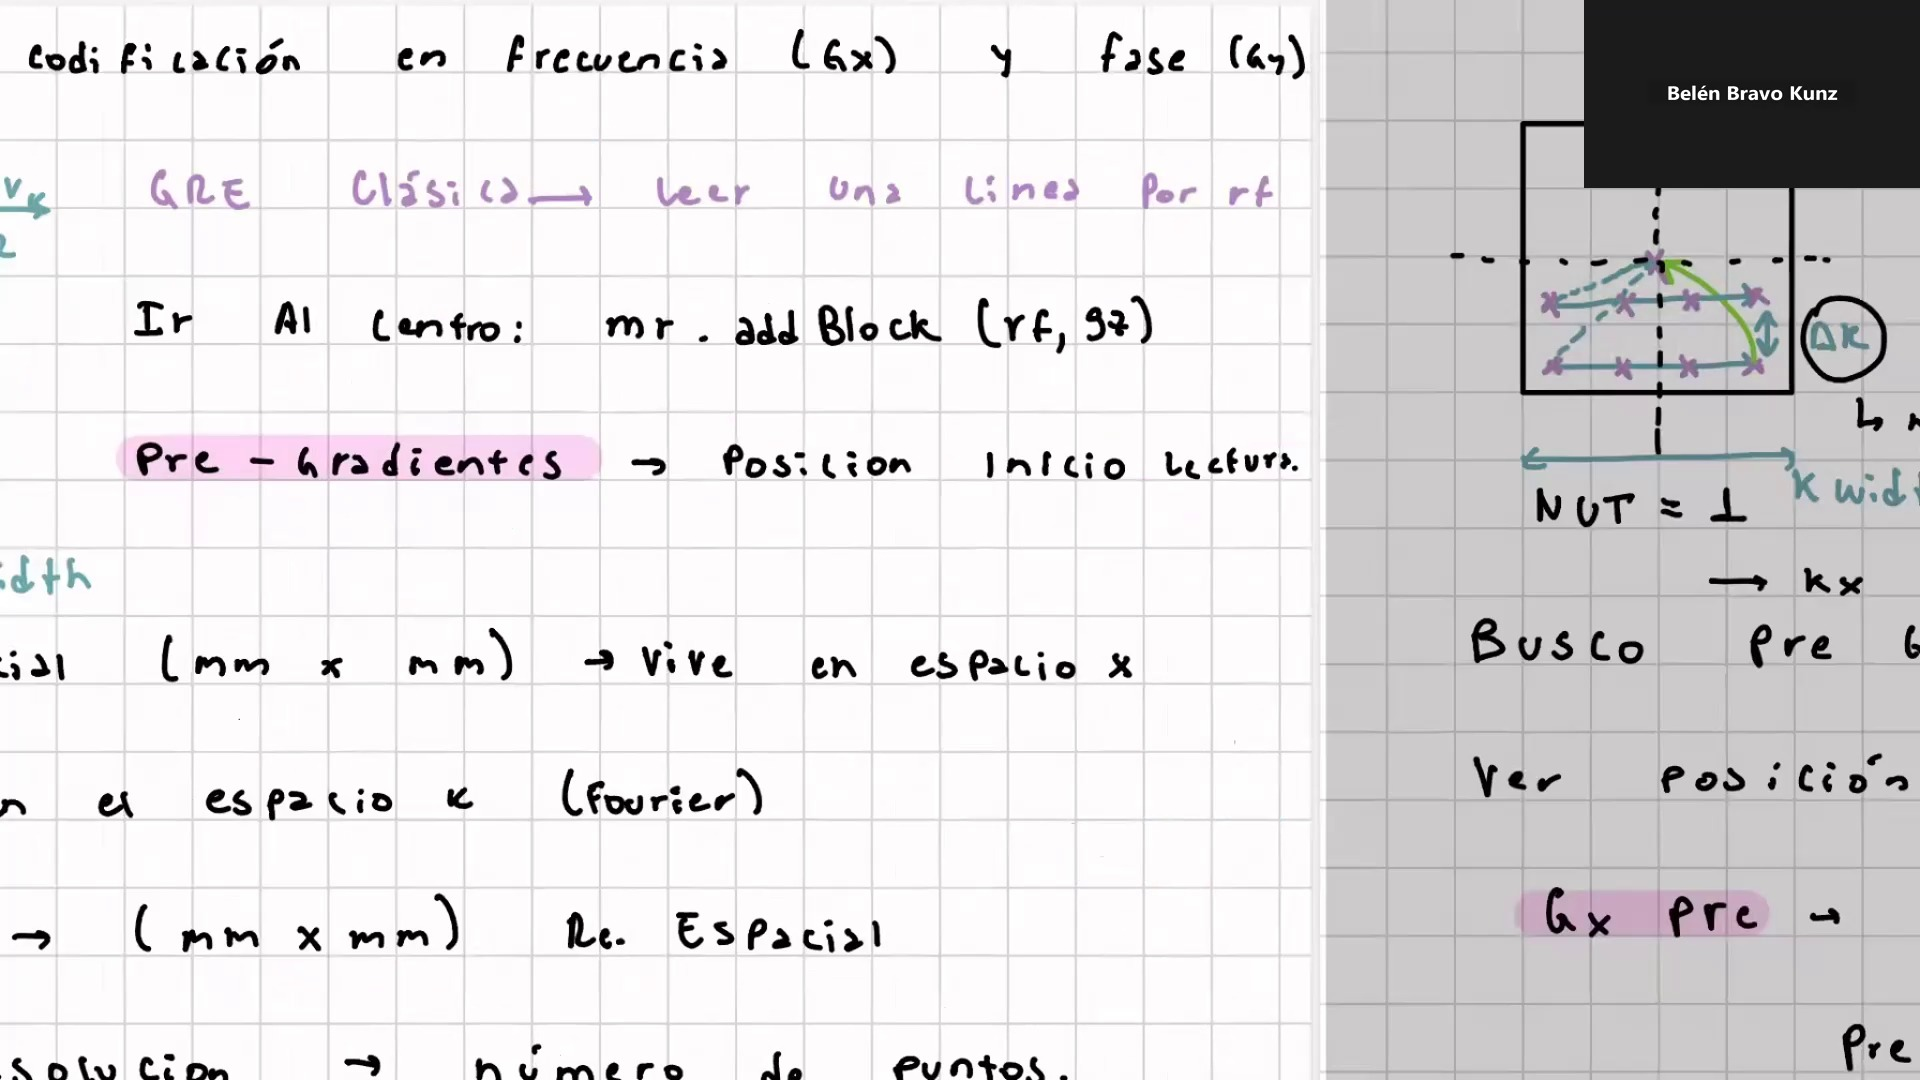 codificación en frecuencia (Gx) y fase (Gy)
GRE Clásica → leer una linea por rf
Ir Al centro: mr. addBlock (rf, gz)
Pre - Gradientes → Posicion Inicio Lectura.
idth
cial (mm x mm) → vive en espacio x
n el espacio k (fourier)
→ (mm x mm) Re. Espacial
solucion → número de puntos.
Belén Bravo Kunz
Δk
k widt
NUT = 1
→ kx
Busco Pre G
Ver posición
Gx pre →
Pre